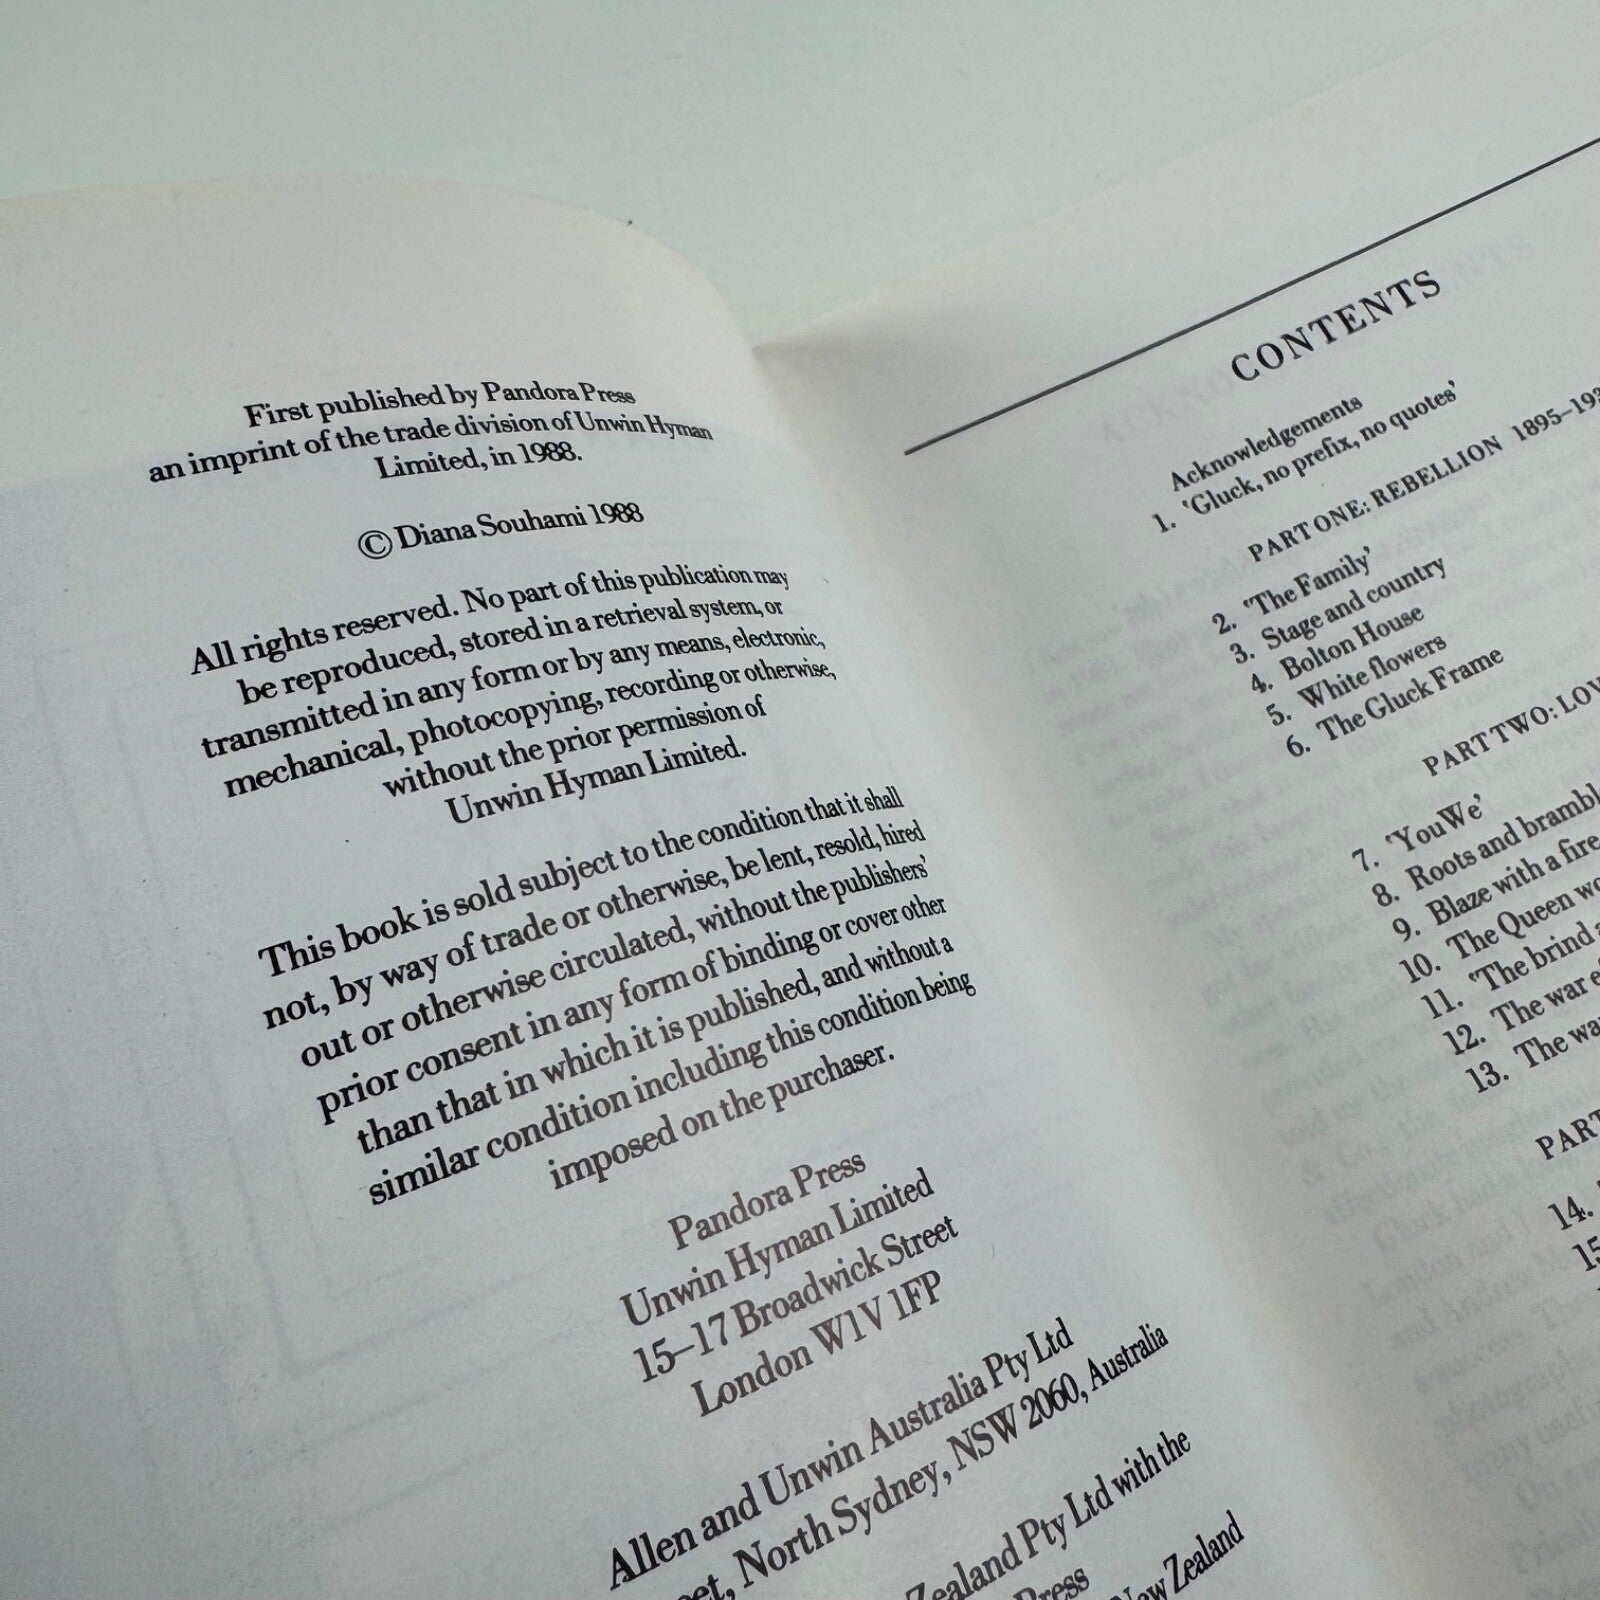 First published by Pandora Press
an imprint of the trade division of Unwin Hyman
Limited, in 1988.
© Diana Souhami 1988
All rights reserved. No part of this publication may
be reproduced, stored in a retrieval system, or
transmitted in any form or by any means, electronic,
mechanical, photocopying, recording or otherwise,
without the prior permission of
Unwin Hyman Limited.
This book is sold subject to the condition that it shall
not, by way of trade or otherwise, be lent, resold, hired
out or otherwise circulated, without the publishers'
prior consent in any form of binding or cover other
than that in which it is published, and without a
similar condition including this condition being
imposed on the purchaser.
Pandora Press
Unwin Hyman Limited
15–17 Broadwick Street
London W1V 1FP
Allen and Unwin Australia Pty Ltd
North Sydney, NSW 2060, Australia
Zealand Pty Ltd with the
Press
New Zealand
CONTENTS
Acknowledgements
1. 'Gluck, no prefix, no quotes'
PART ONE: REBELLION 1895–193
2. 'The Family'
3. Stage and country
4. Bolton House
5. White flowers
6. The Gluck Frame
PART TWO: LOV
7. 'YouWe'
8. Roots and brambl
9. Blaze with a fire
10. The Queen wo
11. 'The brind
12. The war e
13. The wa
PART
14.
15